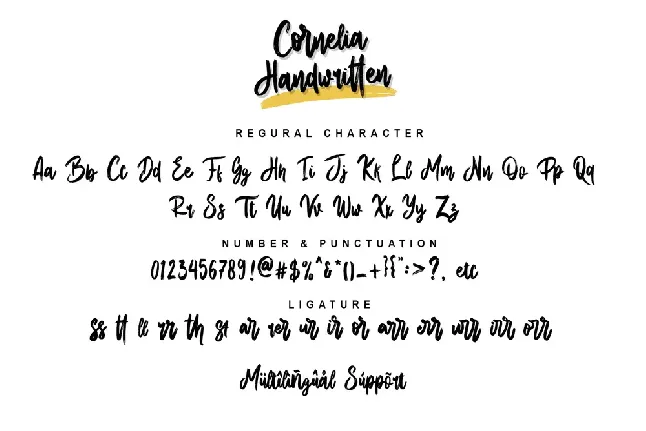 Cornelia
Handwritten
REGURAL CHARACTER
Aa Bb Cc Dd Ee Ff Gg Hh Ii Jj Kk Ll Mm Nn Oo Pp Qq
Rr Ss Tt Uu Vv Ww Xx Yy Zz
NUMBER & PUNCTUATION
0123456789!@#$%^&*()_+}{":>?, etc
LIGATURE
ss tt ll rr th st ar rer ur ir or arr err urr irr orr
Mültîlîñgûâl Súppõrt